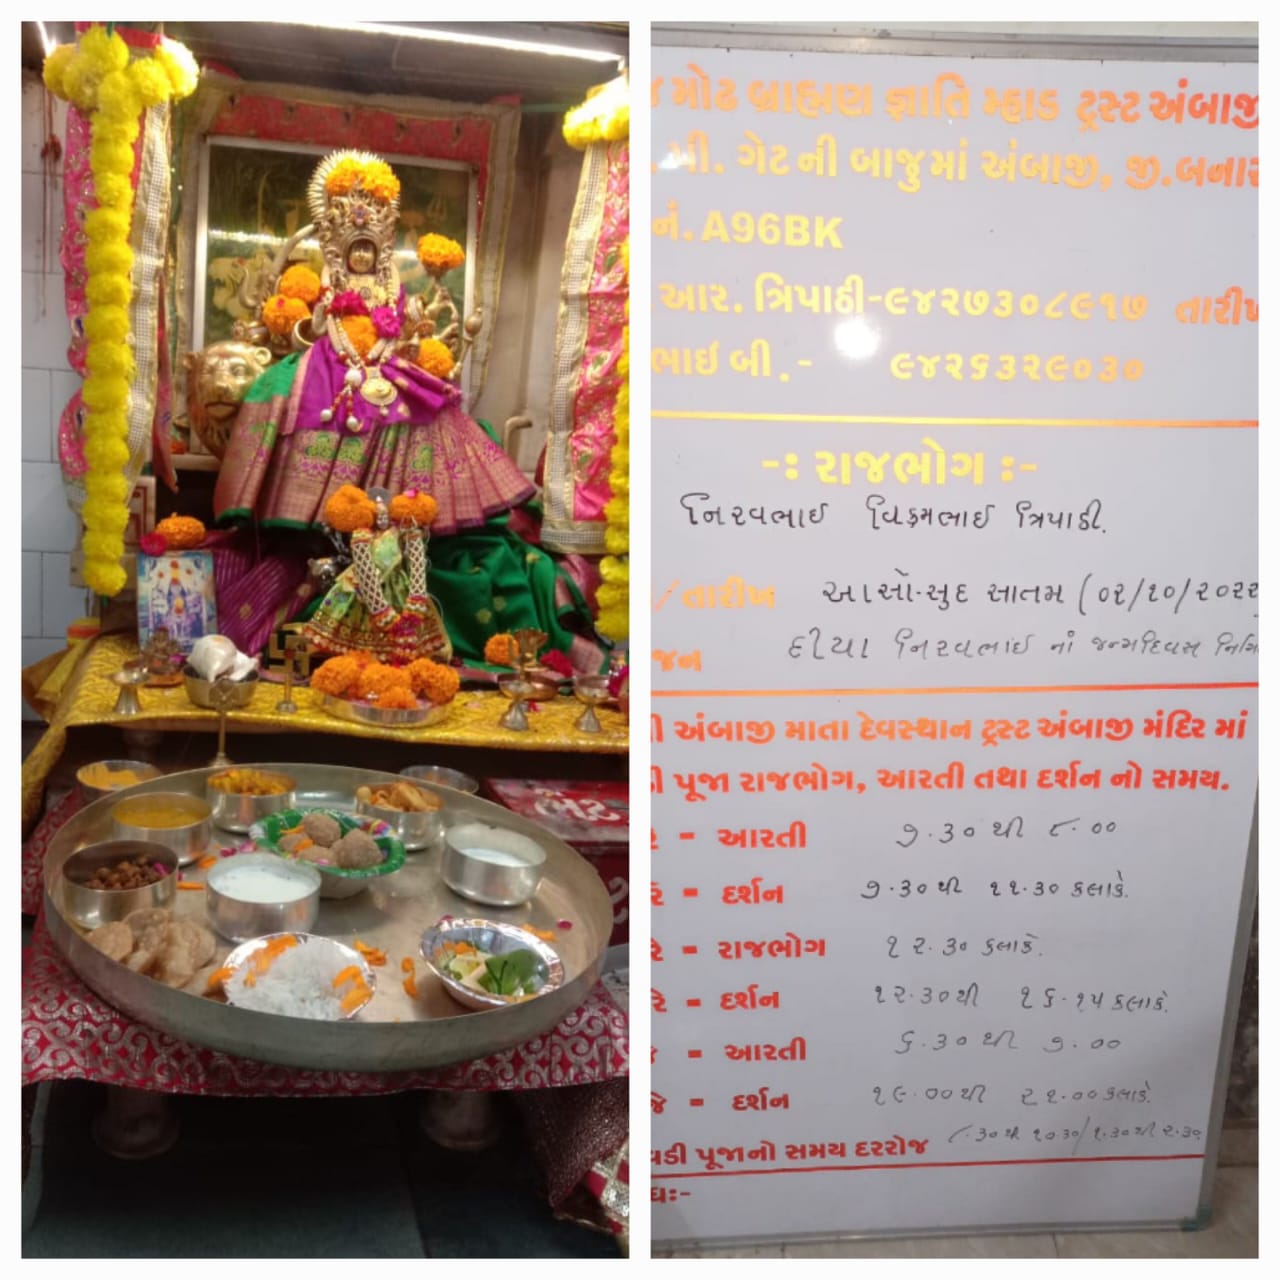 મોઢ બ્રાહ્મણ જ્ઞાતિ મ્હાડ ટ્રસ્ટ અંબાજી
પી. ગેટ ની બાજુમાં અંબાજી, જી.બનાસ
નં. A96BK
આર. ત્રિપાઠી-૯૪૨૭૩૦૮૯૧૭ તારીખ
ભાઈ બી. - ૯૪૨૬૩૨૯૦૩૦
-: રાજભોગ :-
નિરવભાઈ વિક્રમભાઈ ત્રિપાઠી.
/તારીખ આસો-સુદ સાતમ (૦૨/૧૦/૨૦૨૨
જન દીયા નિરવભાઈ નાં જન્મદિવસ
શ્રી અંબાજી માતા દેવસ્થાન ટ્રસ્ટ અંબાજી મંદિર માં
પૂજા રાજભોગ, આરતી તથા દર્શન નો સમય.
- આરતી ૭.૩૦ થી ૮.૦૦
- દર્શન ૭.૩૦ થી ૧૧.૩૦ કલાકે.
- રાજભોગ ૧૨.૩૦ કલાકે.
- દર્શન ૧૨.૩૦થી ૧૬.૧૫ કલાકે.
- આરતી ૬.૩૦ થી ૭.૦૦
- દર્શન ૧૯.૦૦થી ૨૧.૦૦ કલાકે.
વડી પૂજાનો સમય દરરોજ ૮.૩૦ થી ૧૦.૩૦/૧.૩૦થી ૨.૩૦
ધઃ-
ભેટ